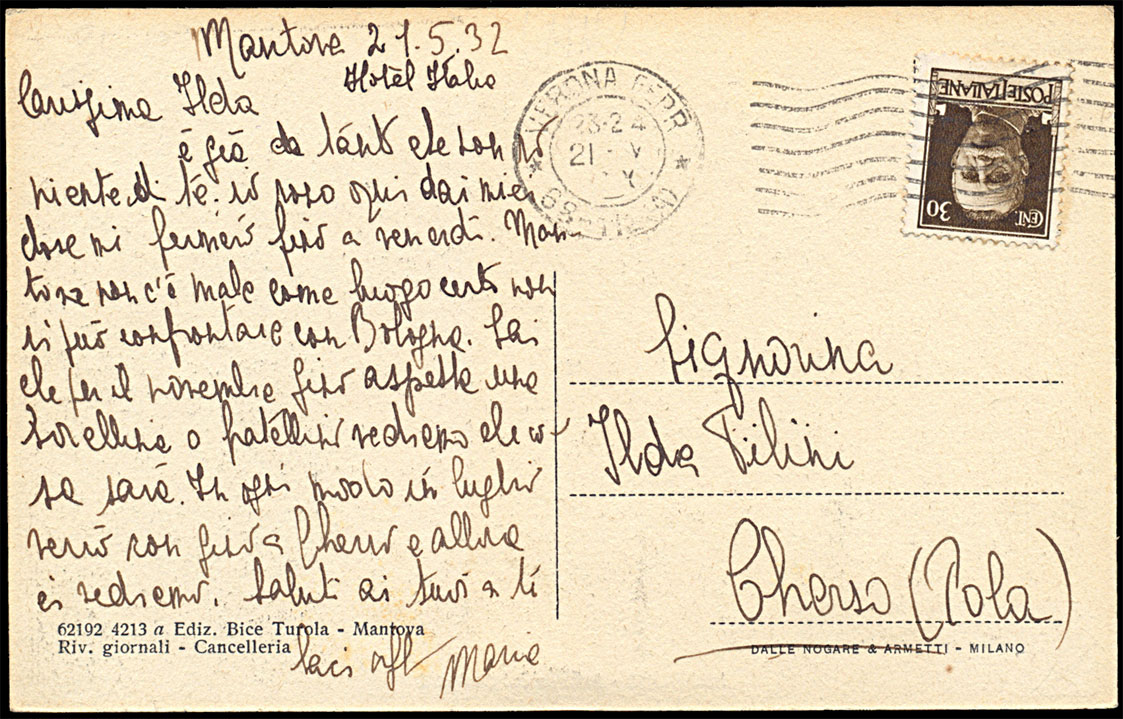 Mantova 21.5.32
Hotel Italia
Carissima Ilda
è già da tanto che non so
niente di te. io sono qui dai miei
dove mi fermerò fino a venerdì. Man
tova non c'è male come luogo certo non
si può confrontare con Bologna. Sai
che per il novembre Gino aspetta una
sorellina o fratellino vedremo che co
sa sarà. In ogni modo in luglio
verrò con Gino a Cherso e allora
ci vedremo. Saluti ai tuoi a te
baci aff Maria
62192 4213 a Ediz. Bice Turola - Mantova
Riv. giornali - Cancelleria
VERONA FERR
23-24
21 V
X
POSTE ITALIANE
CENT. 30
Signorina
Ilda Filini
Cherso (Pola)
DALLE NOGARE & ARMETTI - MILANO